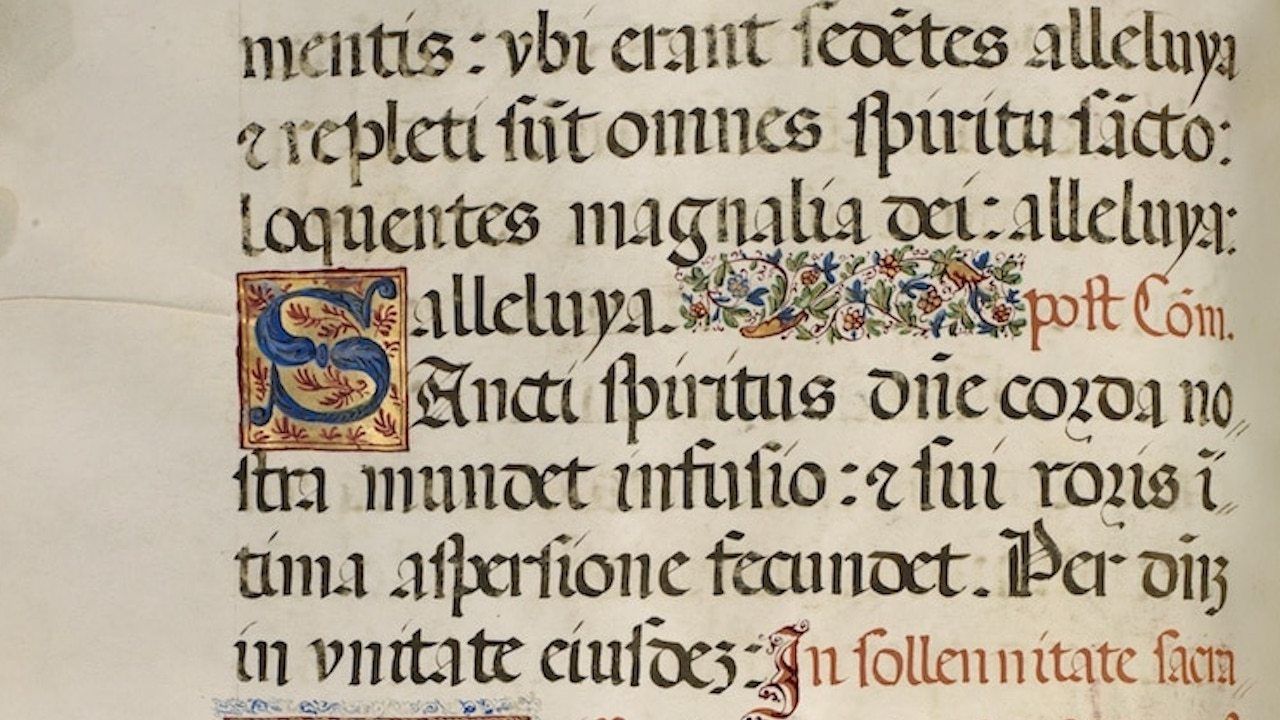 mentis: vbi erant sedētes alleluya
⁊ repleti sūt omnes spiritu sācto:
loquentes magnalia dei: alleluya:
alleluya. post Cōm.
SAncti spiritus dn̄e corda no〃
stra mundet infusio: ⁊ sui roris ī〃
tima aspersione fecundet. Per dn̄ꝫ
in vnitate eiusdeꝫ: In sollennitate sacra〃